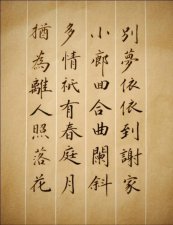 別夢依依到謝家
小廊回合曲闌斜
多情衹有春庭月
猶為離人照落花